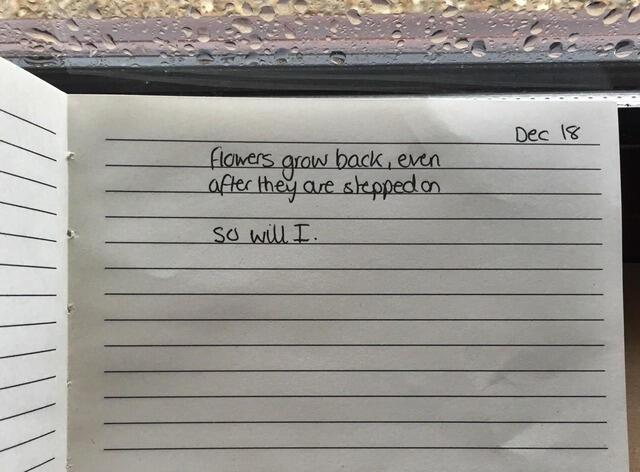 Dec 18
flowers grow back, even
after they are stepped on
so will I.